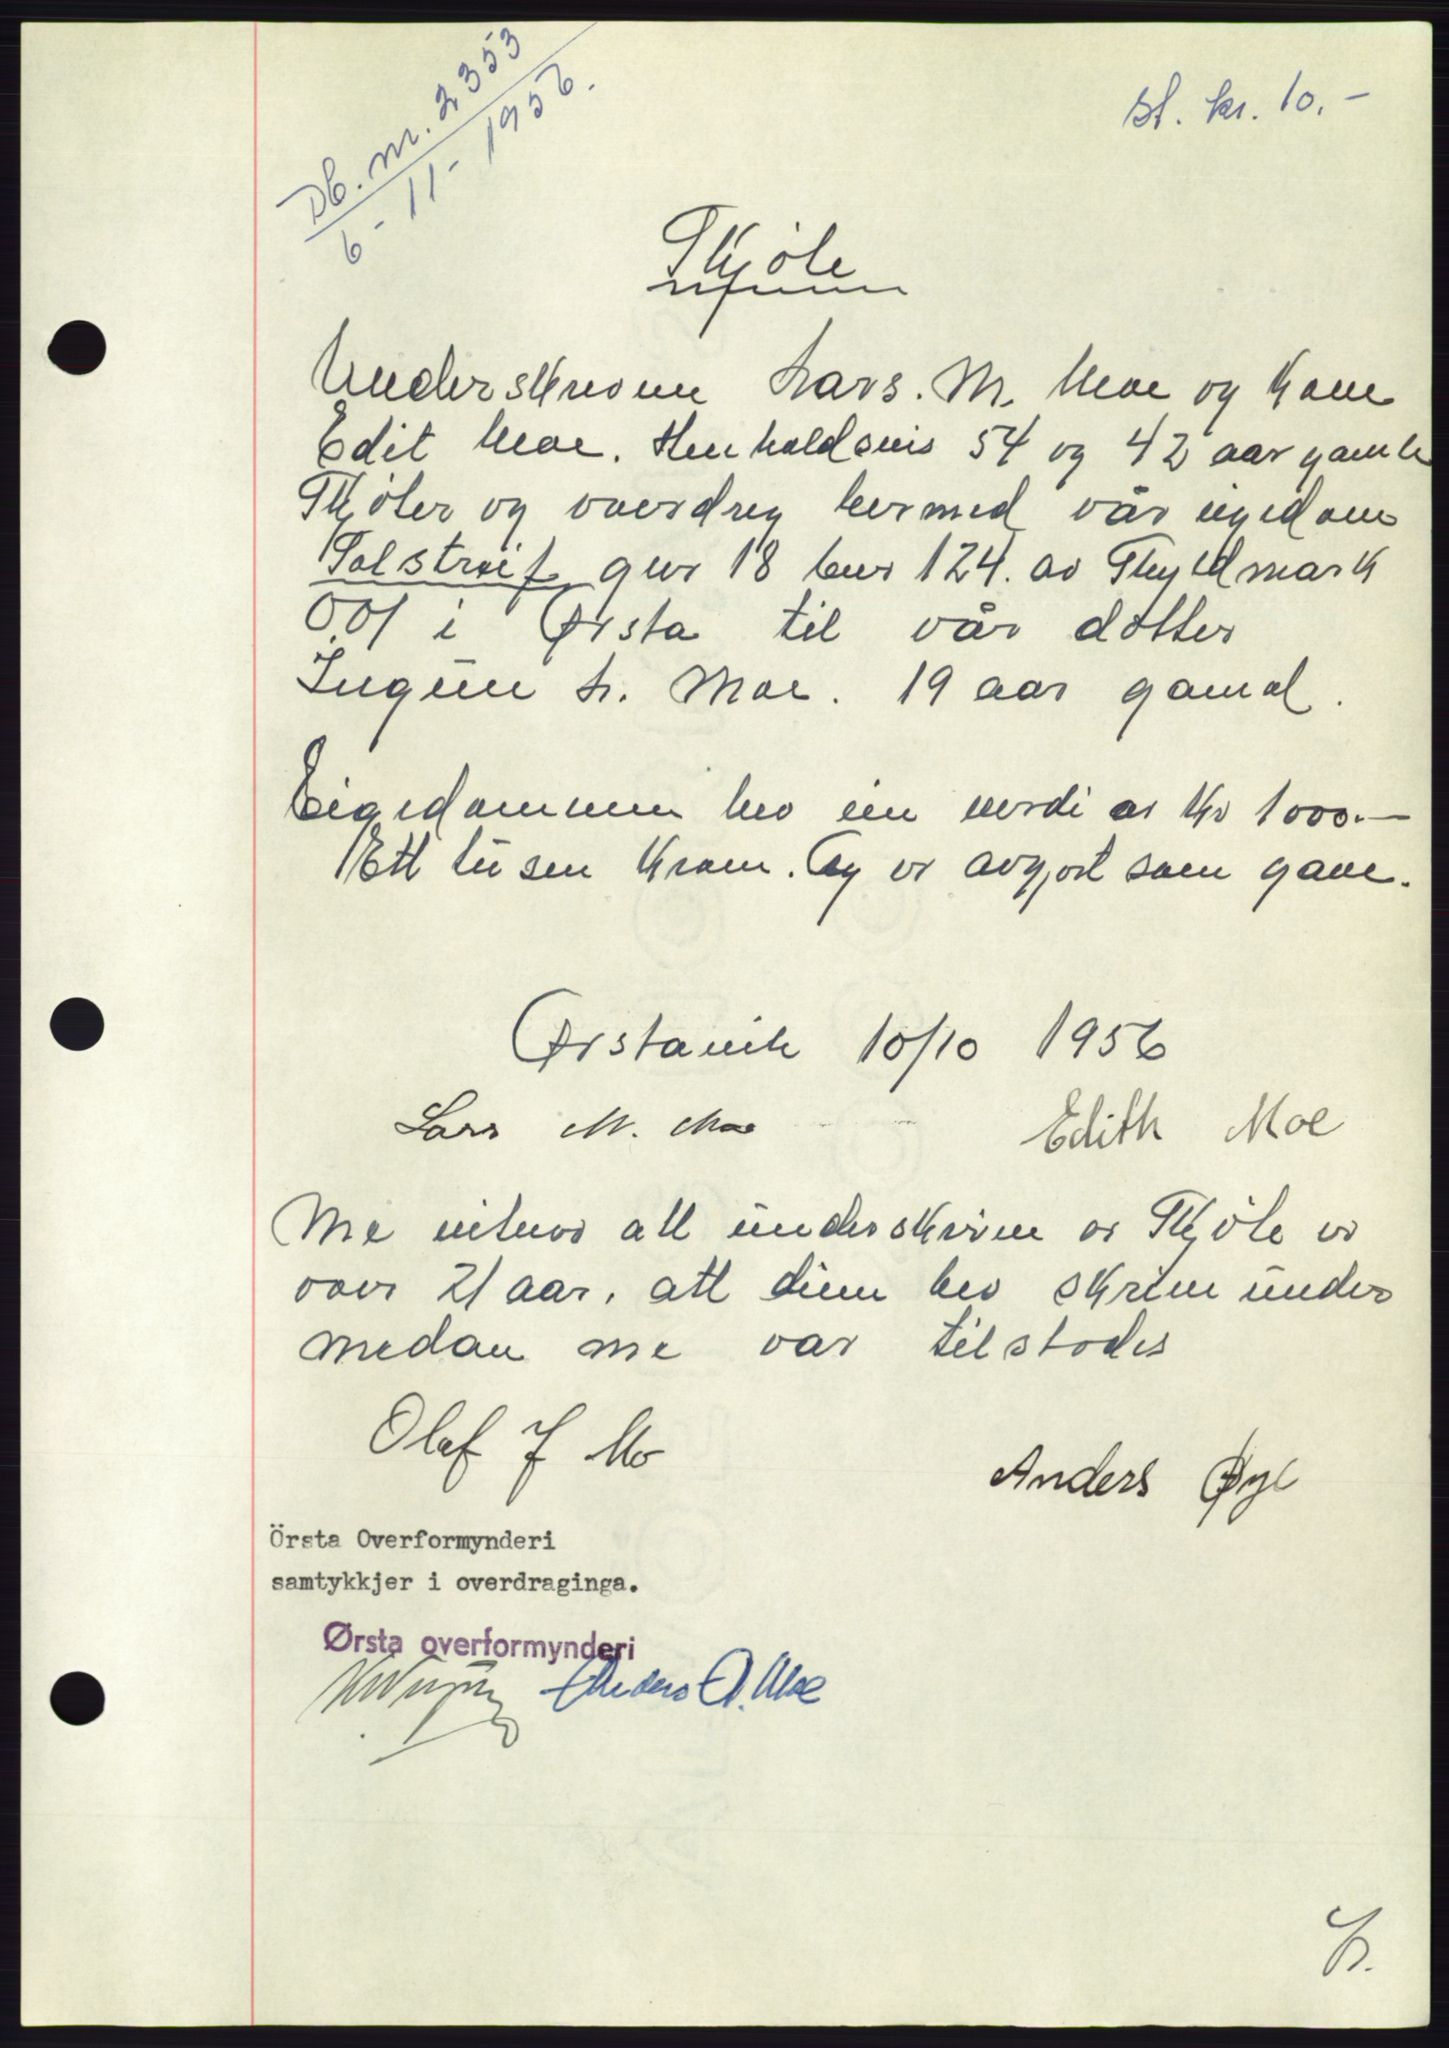 Db. nr. 2353
6-11-1956.
st. kr. 10.-
Skjøte
Underskrevne Lars. M. Moe og Kone
Edit Moe. Henholdsvis 54 og 42 aar gamle
Skjøter og overdreg hermed vår eigedom
Solstreif gnr 18 bnr 124. av Skyldmark
0,01 i Ørsta til vår dotter
Ingunn L. Moe. 19 aar gamal.
Eigedommen hev ein verdi av Kr 1000.-
Ett tusen Kroner. Og er avgjort som gave.
Ørstavik 10/10 1956
Lars M. Moe Edith Moe
Me vitner att underskriven av Skjøte er
over 21 aar, att dei hev skrive under
medan me var tilstodes
Olaf J Mo
Anders Øye
Örsta Overformynderi
samtykkjer i overdraginga.
Ørsta overformynderi
Anders A. Moe